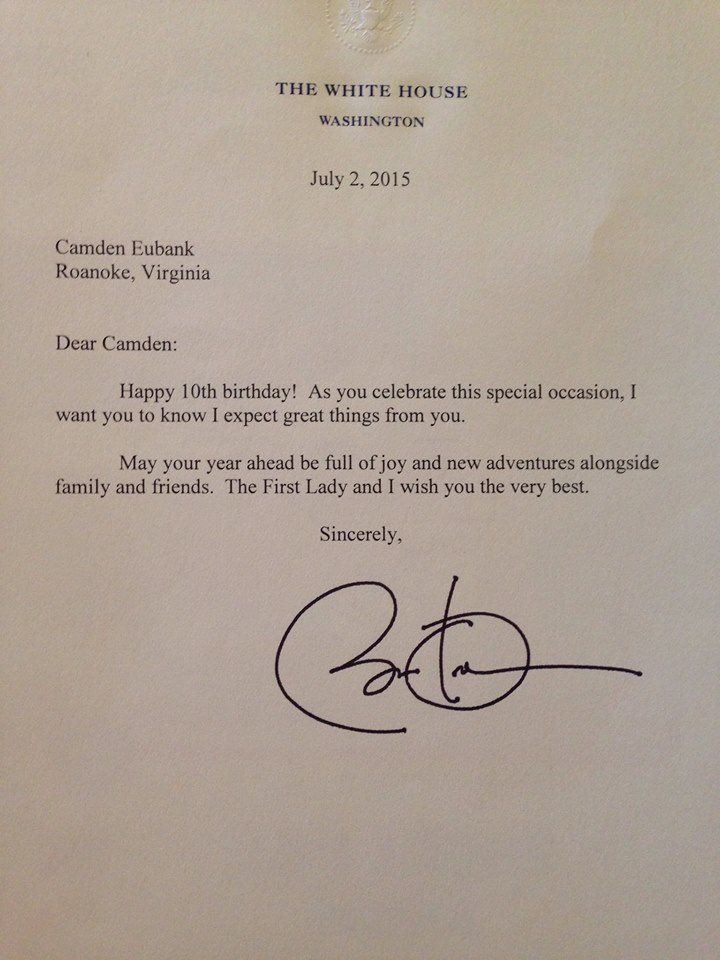 THE WHITE HOUSE
WASHINGTON
July 2, 2015
Camden Eubank
Roanoke, Virginia
Dear Camden:
Happy 10th birthday!  As you celebrate this special occasion, I
want you to know I expect great things from you.
May your year ahead be full of joy and new adventures alongside
family and friends.  The First Lady and I wish you the very best.
Sincerely,